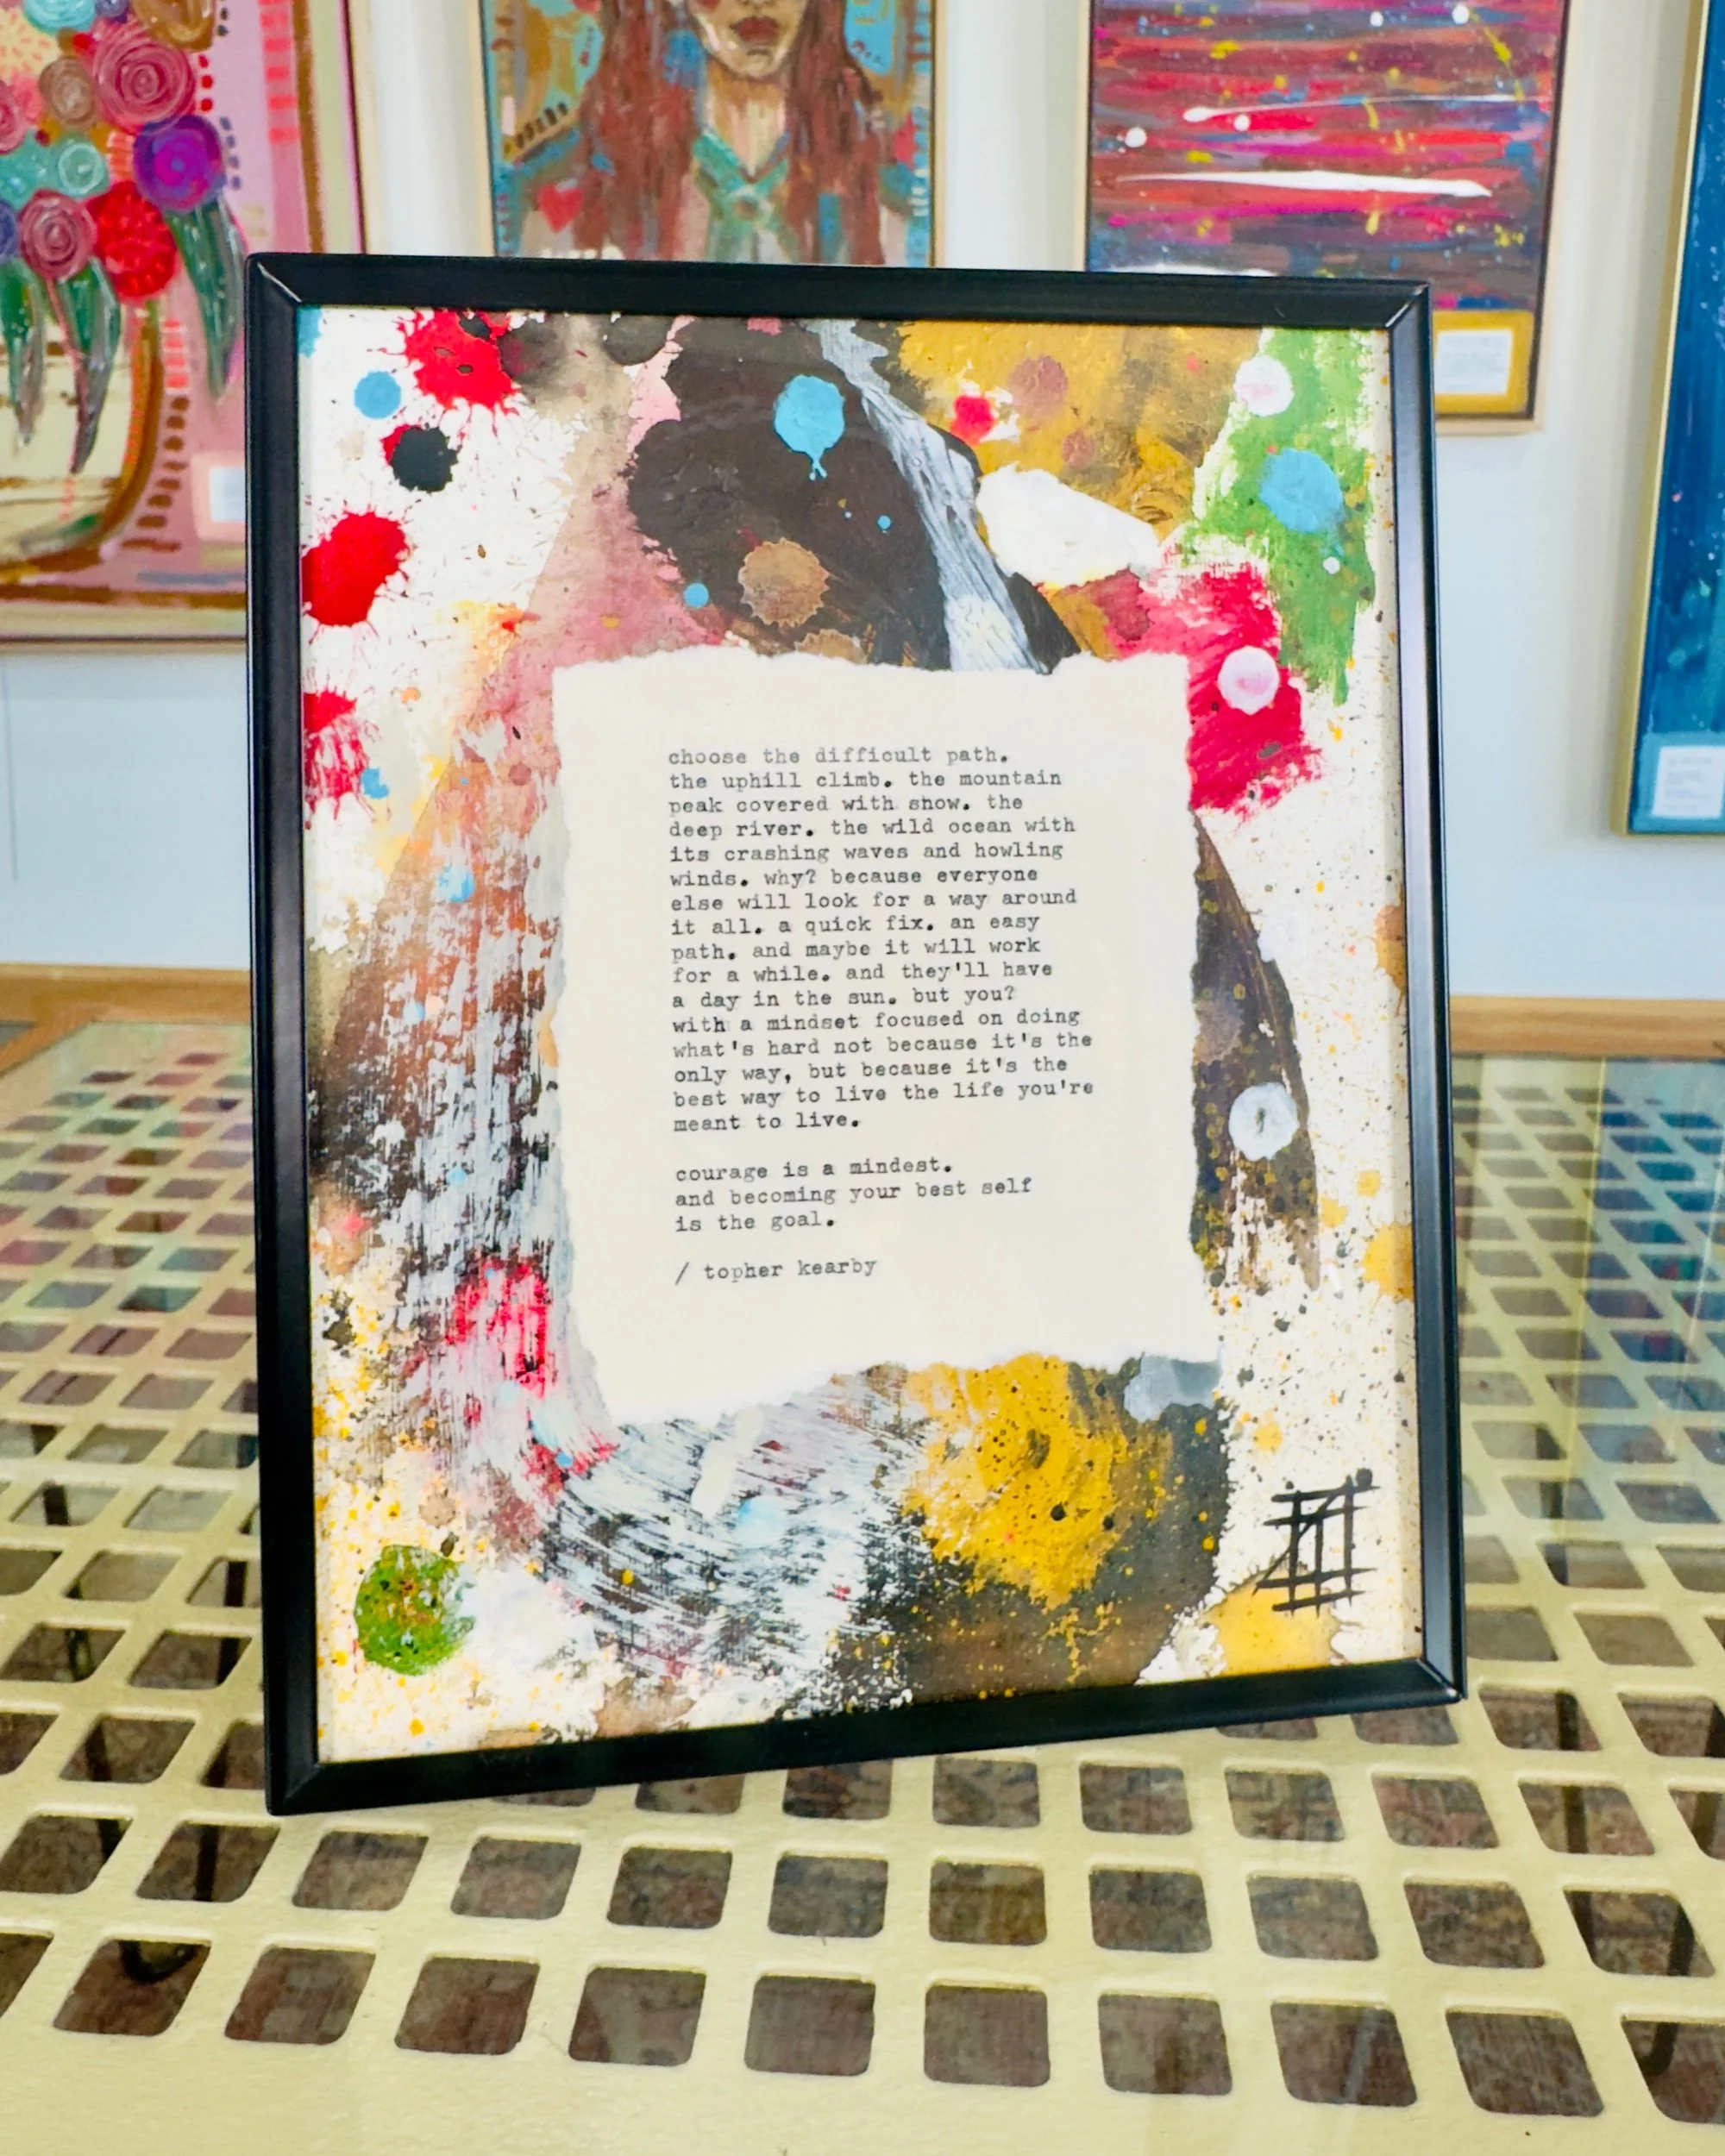 choose the difficult path.
the uphill climb. the mountain
peak covered with snow. the
deep river. the wild ocean with
its crashing waves and howling
winds. why? because everyone
else will look for a way around
it all. a quick fix. an easy
path. and maybe it will work
for a while. and they'll have
a day in the sun. but you?
with a mindset focused on doing
what's hard not because it's the
only way, but because it's the
best way to live the life you're
meant to live.
courage is a mindest.
and becoming your best self
is the goal.
/ topher kearby